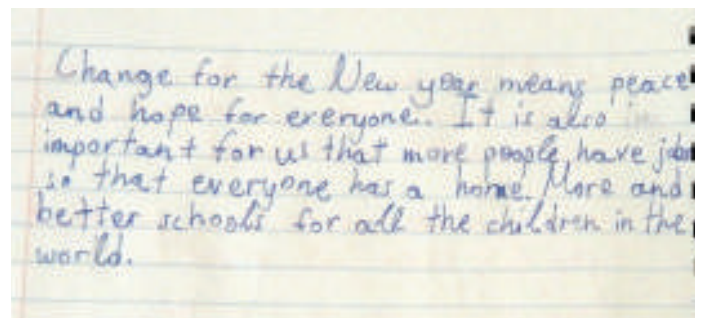 Change for the New year means peace
and hope for everyone. It is also
important for us that more people have jobs
so that everyone has a home. More and
better schools for all the children in the
world.